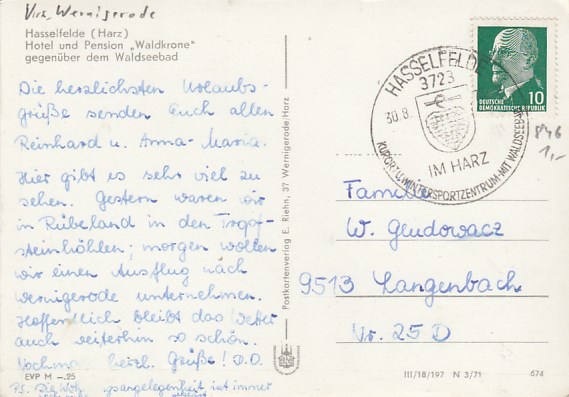 Krs. Wernigerode
Hasselfelde (Harz)
Hotel und Pension „Waldkrone"
gegenüber dem Waldseebad
Die herzlichsten Urlaubs-
grüße senden Euch allen
Reinhard u. Anna-Maria.
Hier gibt es sehr viel zu
sehen. Gestern waren wir
in Rübeland in den Tropf-
steinhöhlen; morgen wollen
wir einen Ausflug nach
Wernigerode unternehmen.
Hoffentlich bleibt das Wetter
auch weiterhin so schön.
Nochmals herzl. Grüße! D.O.
EVP M –.25
PS. Die Woh gsangelegenheit ist immer
Postkartenverlag E. Riehn, 37 Wernigerode/Harz
HASSELFELDE
3723
30.8.
IM HARZ
KURORT U. WINTERSPORTZENTRUM MIT WALDSEEBAD
DEUTSCHE
DEMOKRATISCHE REPUBLIK
10
846
1,-
Familie
W. Gludowacz
9513 Langenbach
Nr. 25 D
III/18/197 N 3/71
674